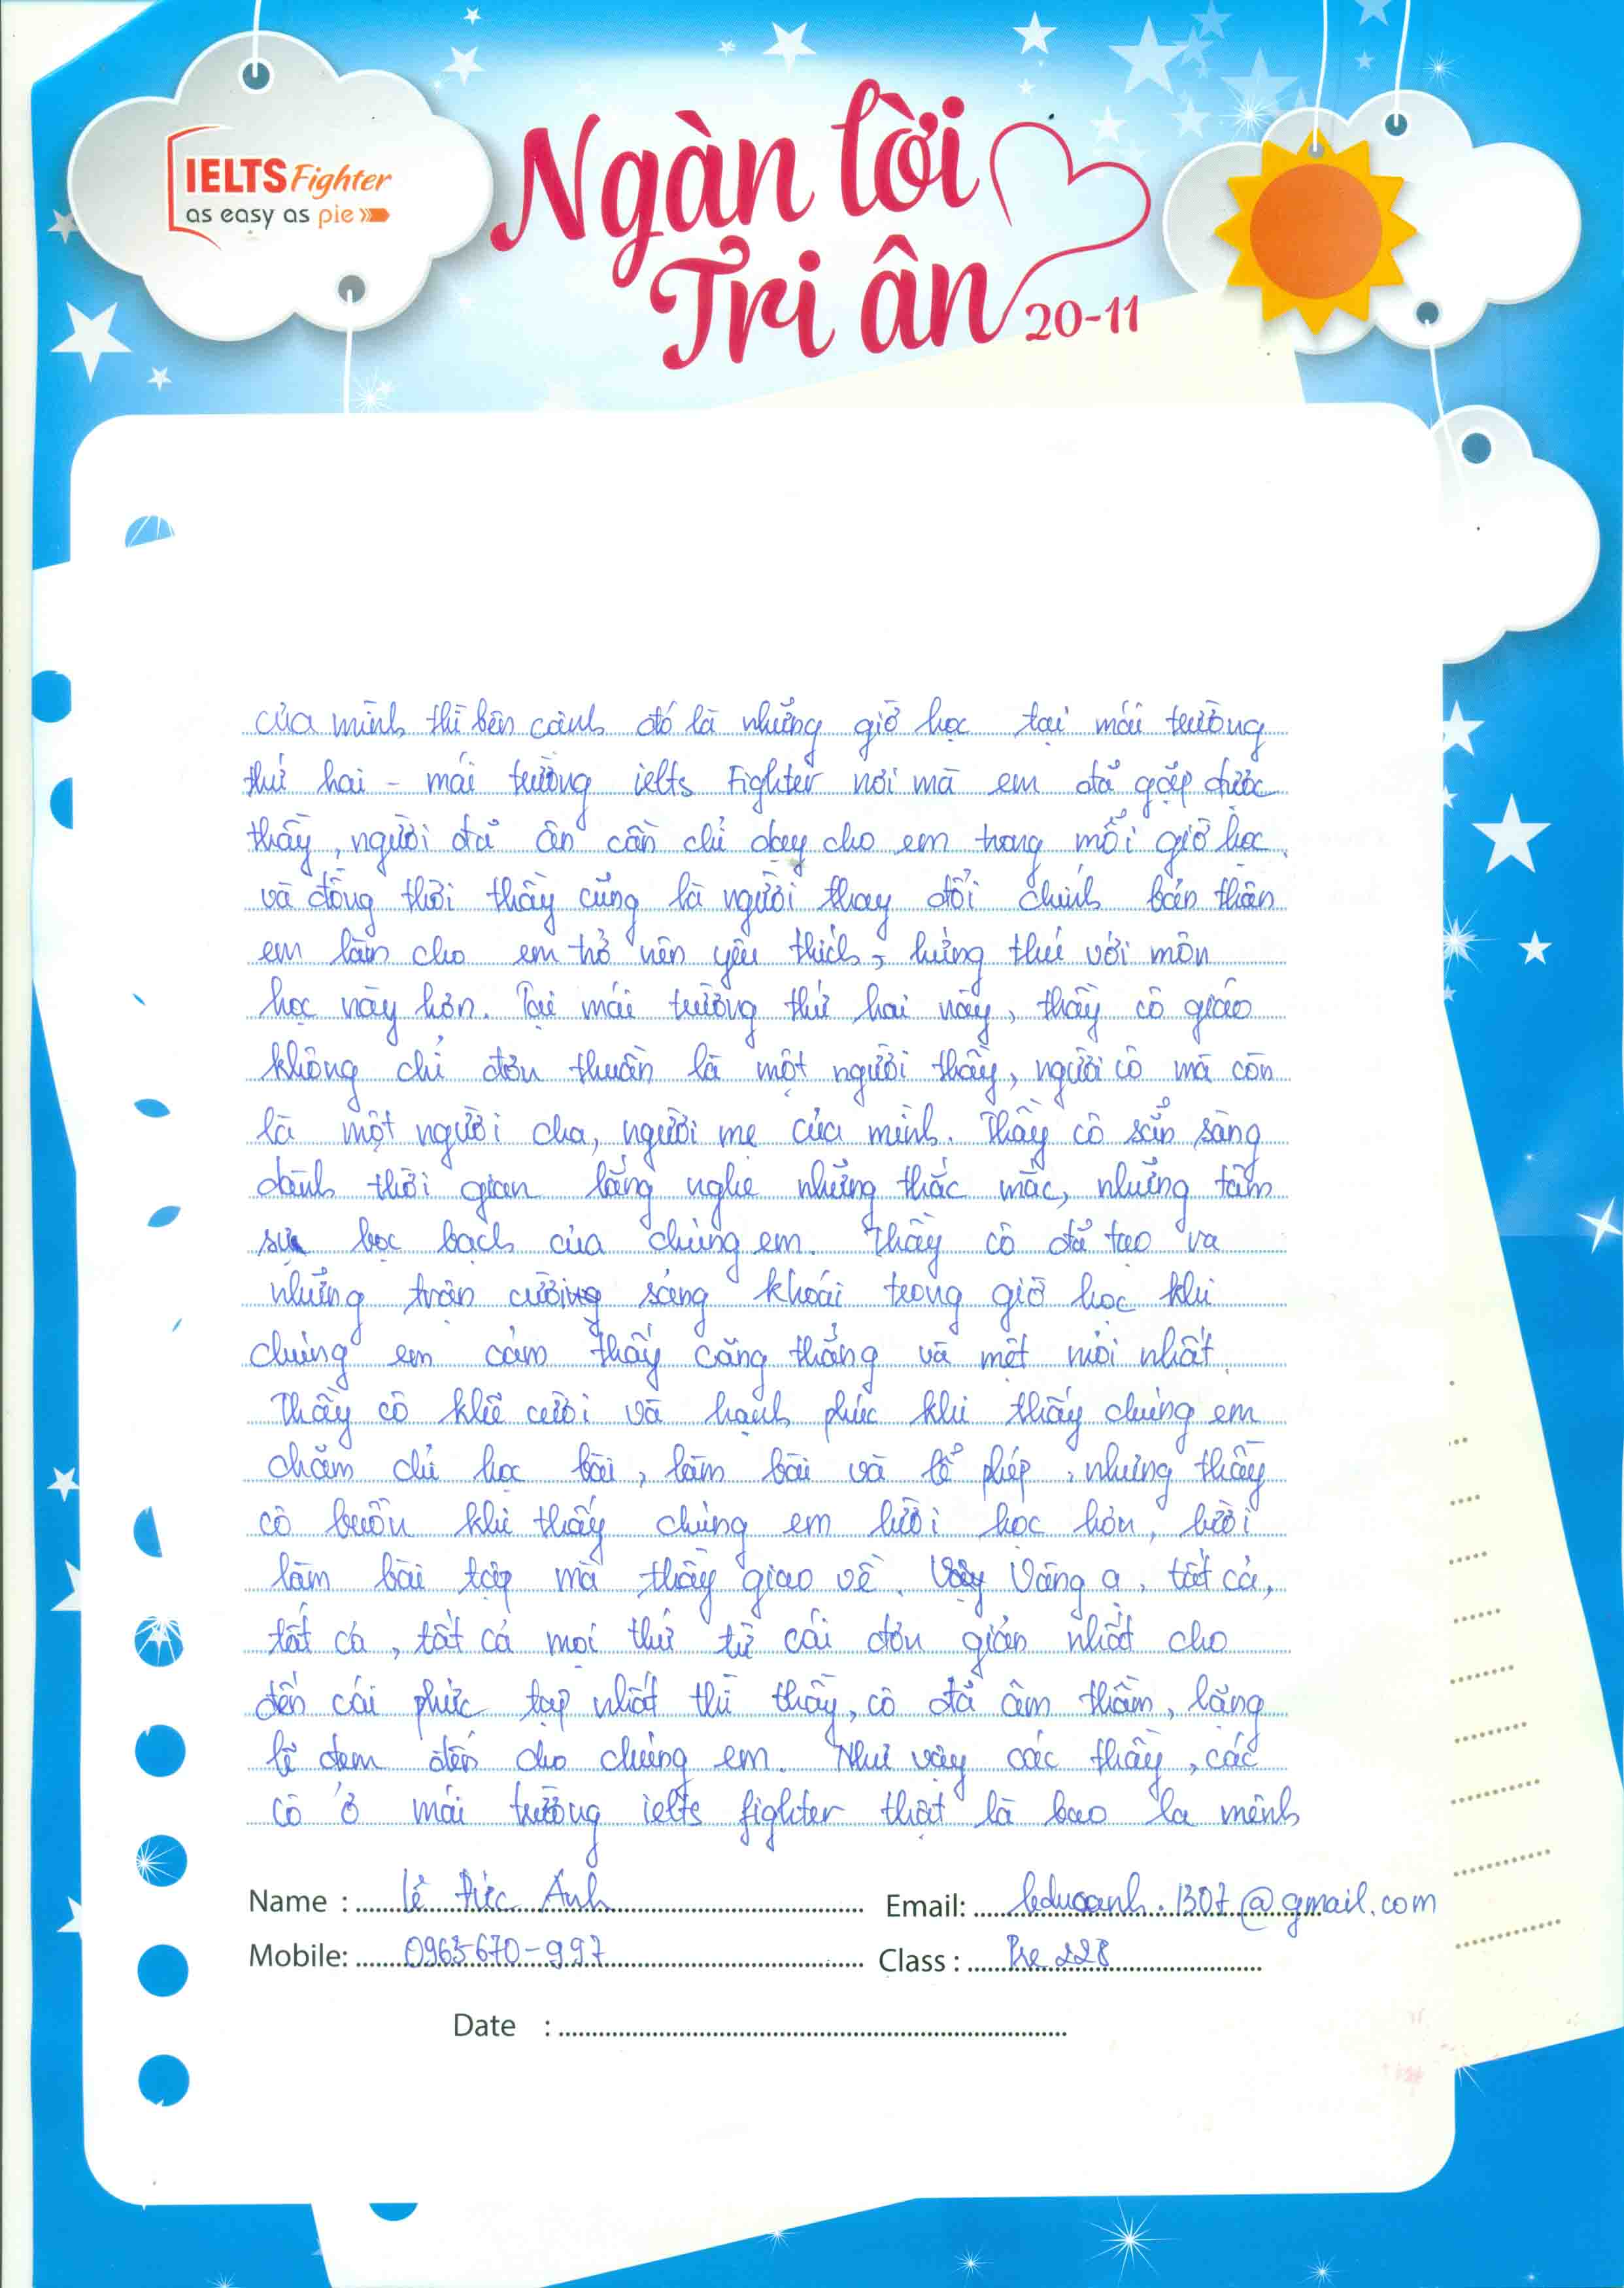 IELTS Fighter
as easy as pie
Ngàn lời
Tri ân
20-11
của mình thì bên cành đó là những giờ học tại mái trường
thứ hai - mái trường ielts Fighter nơi mà em đã gặp được
thầy, người đã ân cần chỉ dạy cho em trong mỗi giờ học.
và đồng thời thầy cũng là người thay đổi chính bản thân
em làm cho em trở nên yêu thích, hứng thú với môn
học này hơn. Tại mái trường thứ hai này, thầy cô giáo
không chỉ đơn thuần là một người thầy, người cô mà còn
là một người cha, người mẹ của mình. Thầy cô sẵn sàng
dành thời gian lắng nghe những thắc mắc, những tâm
sự bọc bạch của chúng em. Thầy cô đã tạo ra
những trận cười sảng khoái trong giờ học khi
chúng em cảm thấy căng thẳng và mệt mỏi nhất.
Thầy cô khẽ cười và hạnh phúc khi thấy chúng em
chăm chỉ học bài, làm bài và lễ phép, nhưng thầy
cô buồn khi thấy chúng em lười học hơn, lười
làm bài tập mà thầy giao về. Vâng ạ, tất cả,
tất cả, tất cả mọi thứ từ cái đơn giản nhất cho
đến cái phức tạp nhất thì thầy, cô đã âm thầm, lặng
lẽ đem đến cho chúng em. Như vậy các thầy, các
cô ở mái trường ielts fighter thật là bao la mênh
Name : Lê Đức Anh Email: leducanh.1307@gmail.com
Mobile: 0963670-997 Class : Pre 228
Date :